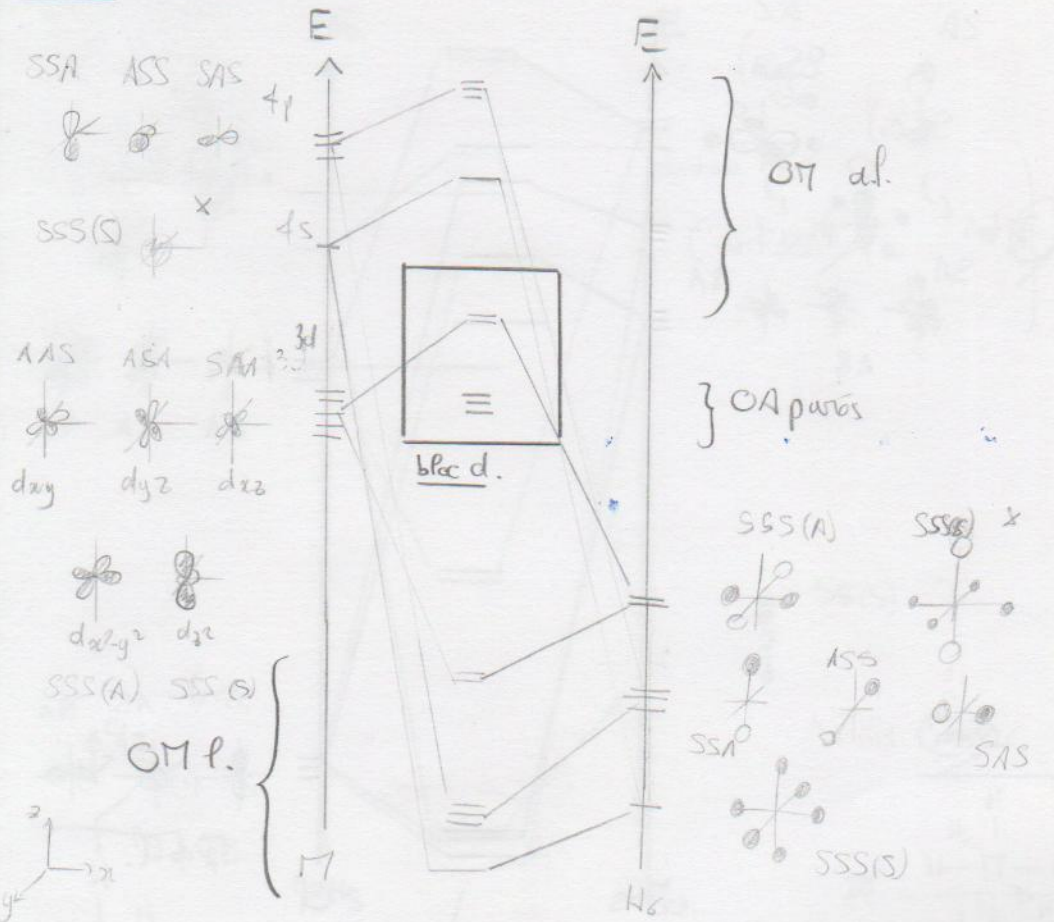 E
E
SSA ASS SAS
4p
SSS(S) x
4s
3d
AAS ASA SAA
dxy dyz dxz
dx²-y² dz²
SSS(A) SSS(S)
OM l.
z
x
y
M
bloc d.
OM a.l.
OA parés
SSS(A) SSS(S) x
SSA ASS SAS
SSS(S)
H6